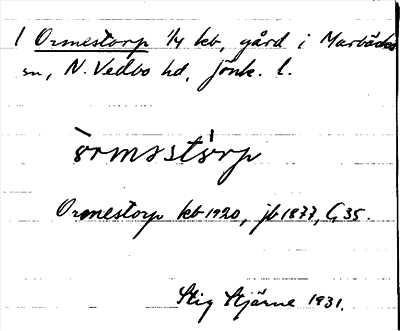 1 Ormestorp 1/4 kb, gård i Marbäcks
sn, N. Vedbo hd, Jönk. l.
òrməstòrp
Ormestorp kb 1920, jb 1877, G 35.
Stig Stjärne 1931.